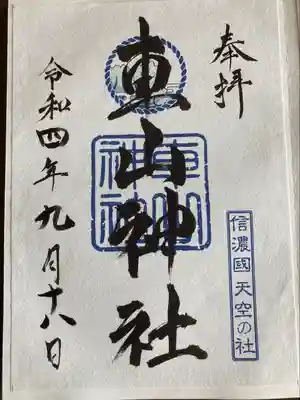 奉拝
東山神社
東山神社
信濃國天空の社
令和四年九月十八日